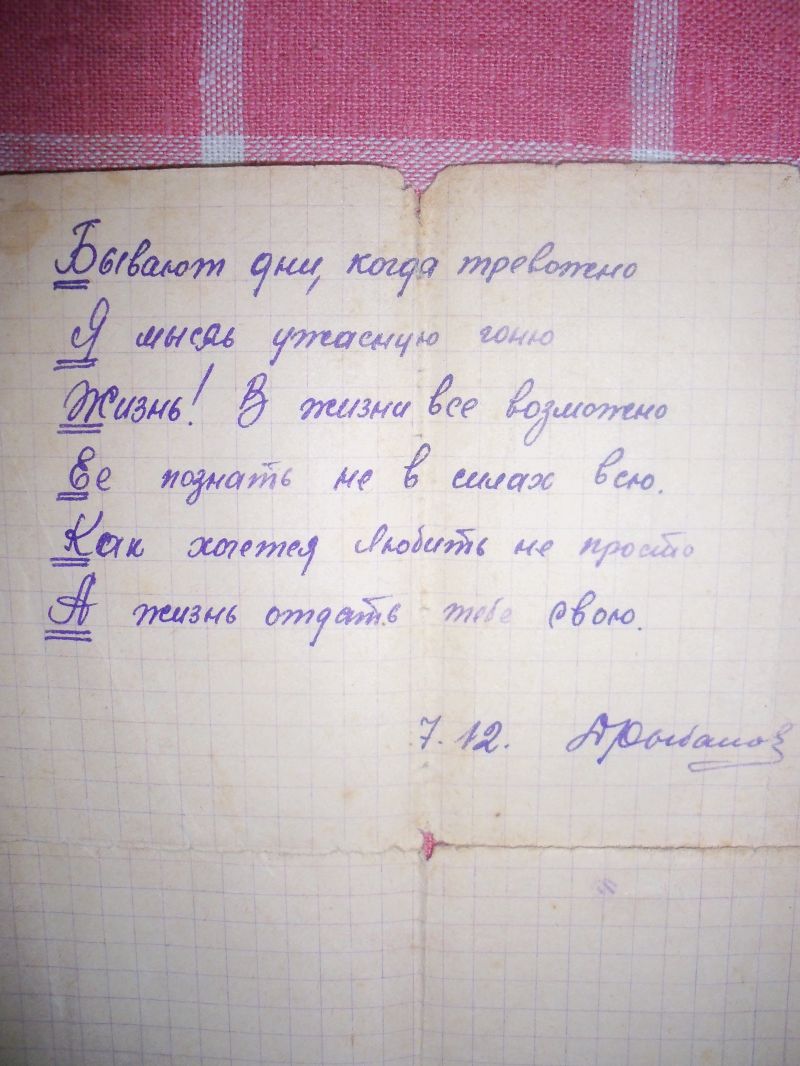 Бывают дни, когда тревожно
Я мысль ужасную гоню
Жизнь! В жизни все возможно
Ее познать не в силах всю.
Как хочется Любить не просто
А жизнь отдать тебе свою.
7.12.